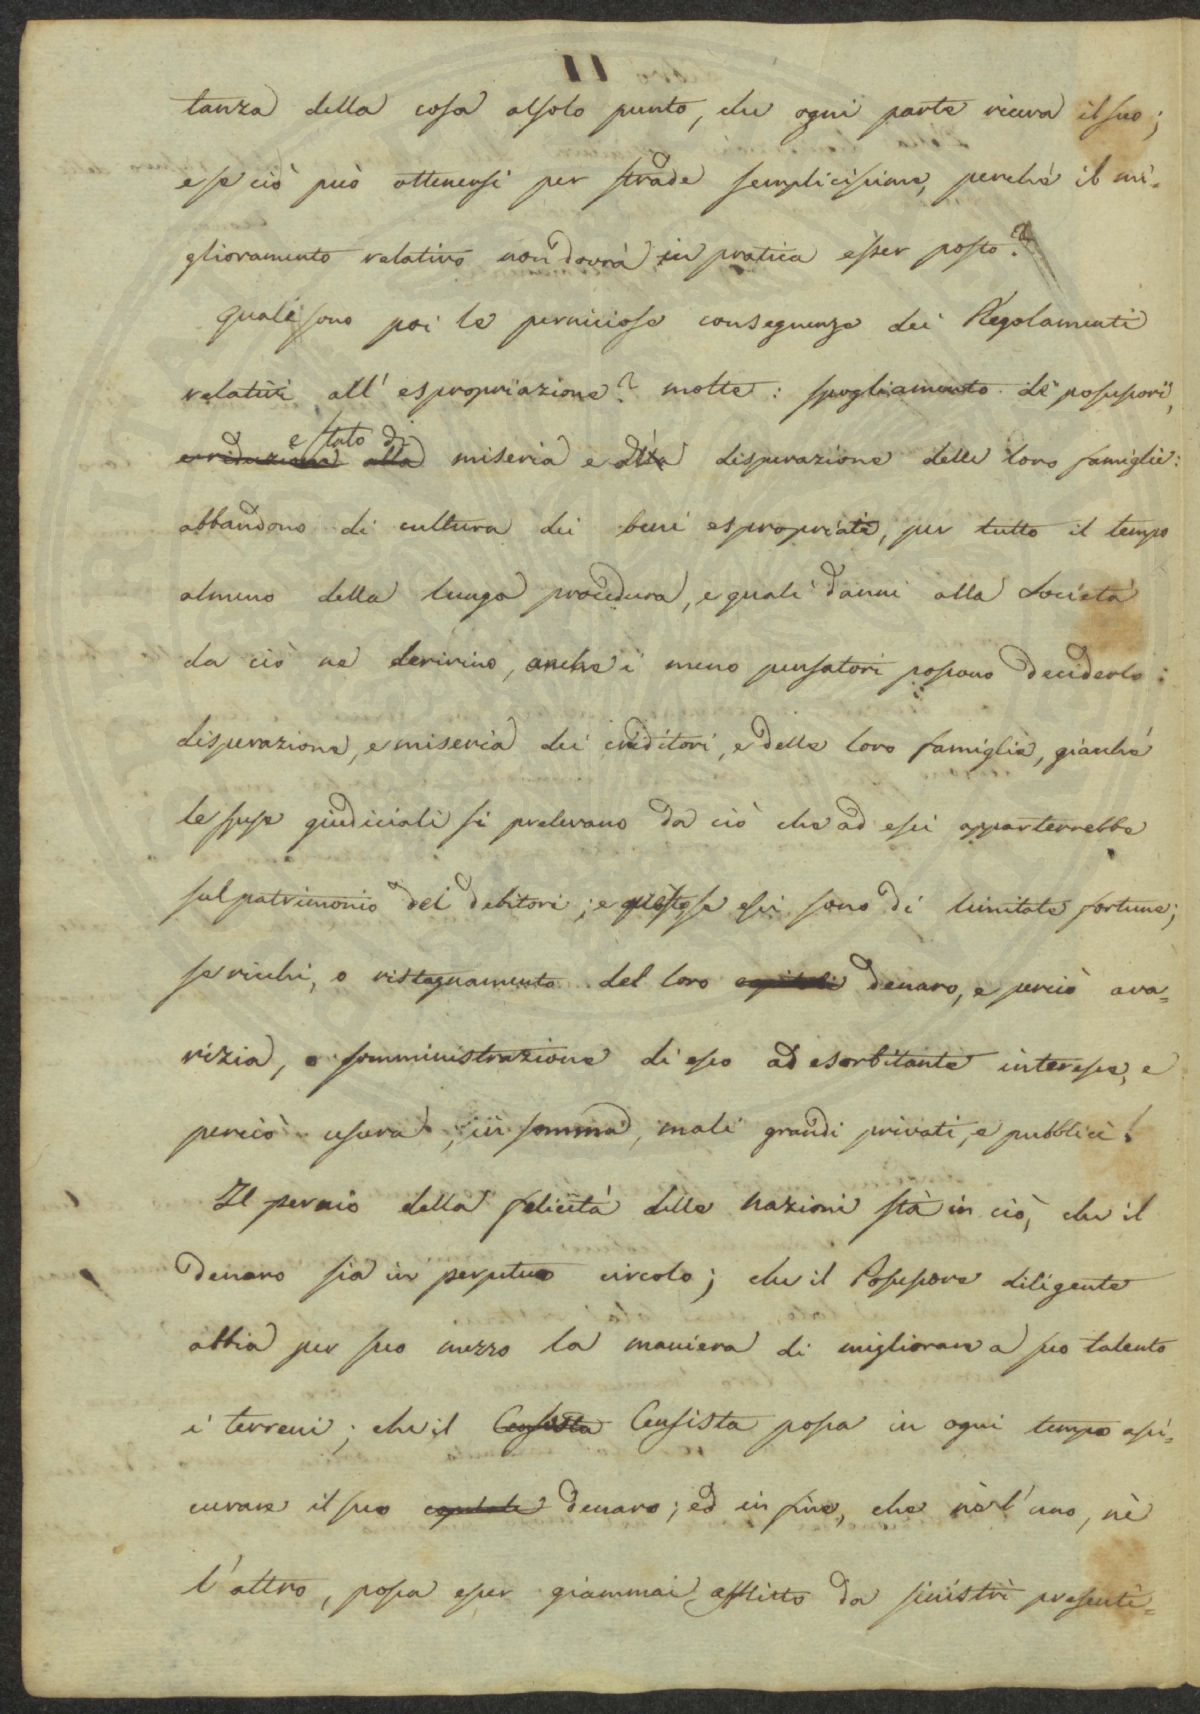 11
tanza della cosa al solo punto, che ogni parte riceva il suo;
e se ciò può ottenersi per strade semplicissime, perchè il mi-
glioramento relativo non dovrà in pratica esser posto?
Quali sono poi le perniciose conseguenze dei Regolamenti
relativi all'espropriazione? molte: spogliamento de' possessori,
e stato di
e riduzione alla miseria e disperazione delle loro famiglie:
abbandono di cultura dei beni espropriati, per tutto il tempo
almeno della lunga procedura, e quali danni alla Società
da ciò ne derivino, anche i meno pensatori possono deciderlo:
disperazione, e miseria dei creditori, e delle loro famiglie, giacchè
le spese giudiciali si prelevano da ciò che ad essi apparterrebbe
sul patrimonio dei debitori; e questo se essi sono di limitate fortune;
se ricchi, o ristagnamento del loro capitali denaro, e perciò ava=
rizia, o somministrazione di esso ad esorbitante interesse, e
perciò usura; in somma, mali grandi privati, e pubblici!
Il pernio della felicità delle nazioni stà in ciò, che il
denaro sia in perpetuo circolo; che il Possessore diligente
abbia per suo mezzo la maniera di migliorare a suo talento
i terreni; che il Censista Censista possa in ogni tempo assi=
curare il suo capitale denaro; ed in fine, che nè l'uno, nè
l'altro, possa esser giammai afflitto da sinistri presenti=